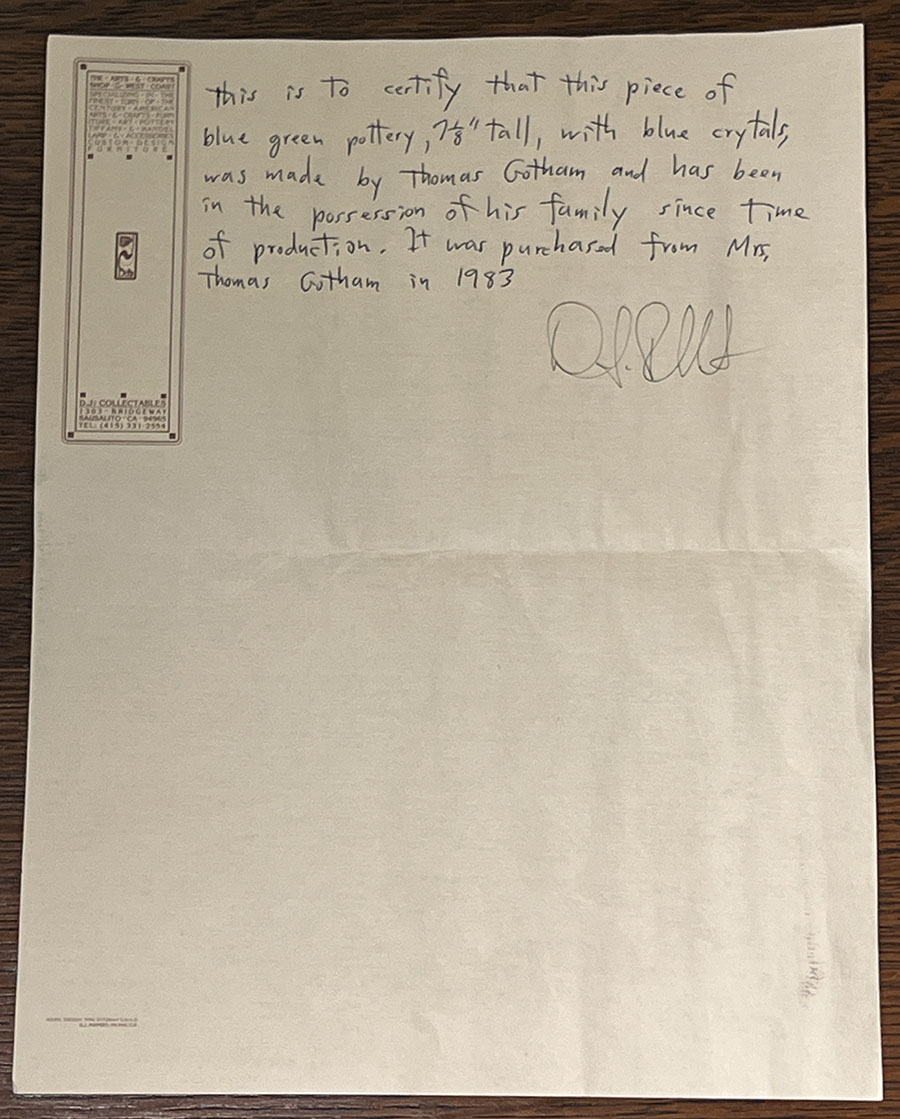 THE · ARTS · & · CRAFTS
SHOP · OF · WEST · COAST
SPECIALIZING · IN · THE
FINEST · TURN · OF · THE
CENTURY · AMERICAN
ARTS · & · CRAFTS · FURN
ITURE · ART · POTTERY
TIFFANY · & · HANDEL
LAMP · & · ACCESSORIES
CUSTOM · DESIGN
FURNITURE
this is to certify that this piece of
blue green pottery, 7 1/8" tall, with blue crytals,
was made by Thomas Gotham and has been
in the possession of his family since time
of production. It was purchased from Mrs,
Thomas Gotham in 1983
D.J. COLLECTABLES
1303 · BRIDGEWAY
SAUSALITO · CA · 94965
TEL: (415) 331·2554